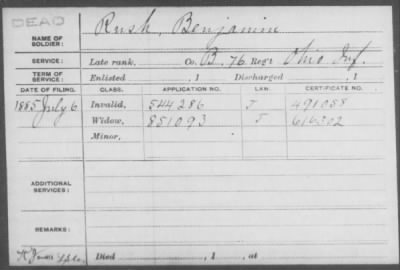 DEAD
NAME OF SOLDIER: Rush, Benjamin
SERVICE: Late rank, Co. B, 76 Reg't Ohio Inf.
TERM OF SERVICE: Enlisted , 1 Discharged , 1
DATE OF FILING. CLASS. APPLICATION NO. LAW. CERTIFICATE NO.
1885 July 6 Invalid, 544286 J 491058
Widow, 851093 J 616302
Minor,
ADDITIONAL SERVICES:
REMARKS:
Died , 1 , at